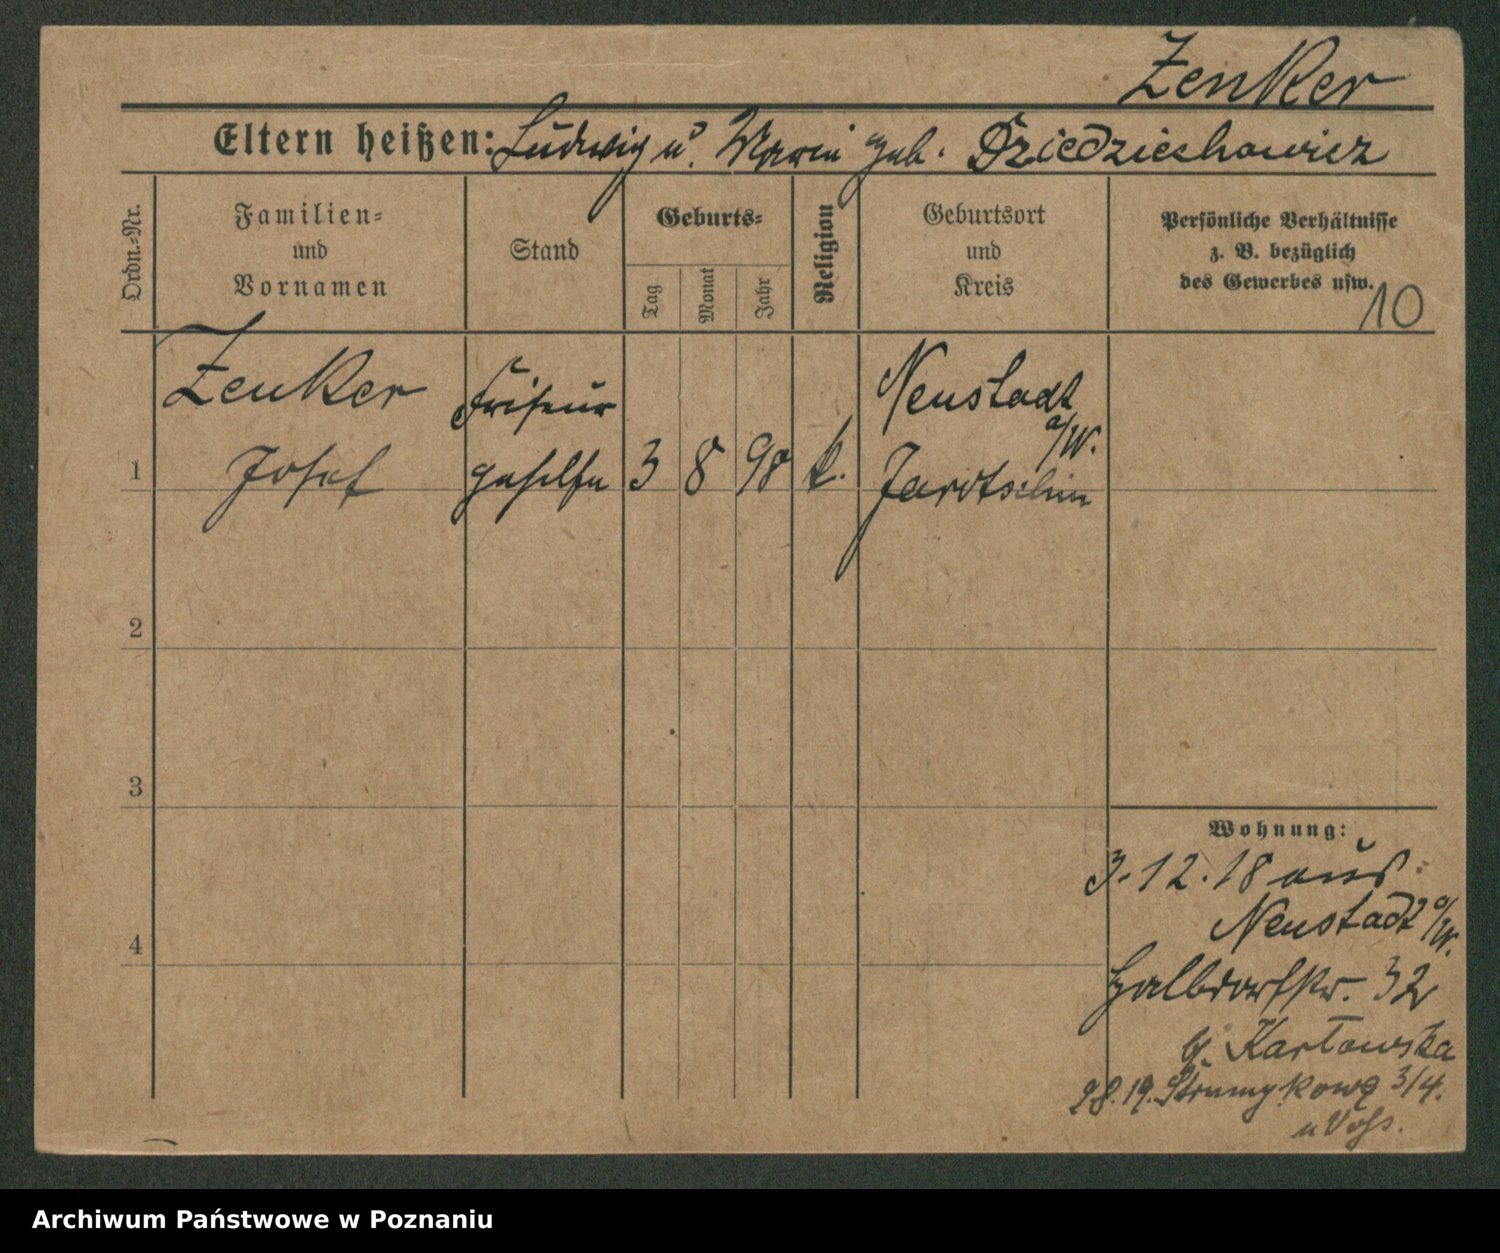 Zenker
Eltern heißen: Ludwig u. Maria geb. Dziedzieshowicz
Ordn.-Nr.
Familien-
und
Vornamen
Stand
Geburts-
Tag
Monat
Jahr
Religion
Geburtsort
und
Kreis
Persönliche Verhältnisse
z. B. bezüglich
des Gewerbes usw.
10
Zenker
Friseur
Neustadt
a/W.
1
Josef
gehilfe
3
8
98
k.
Jarotschin
2
3
Wohnung:
3.12.18 aus
Neustadt a/W.
4
Halbdorfstr. 32
b. Karlowska
28.19. Strumykowa 3/4.